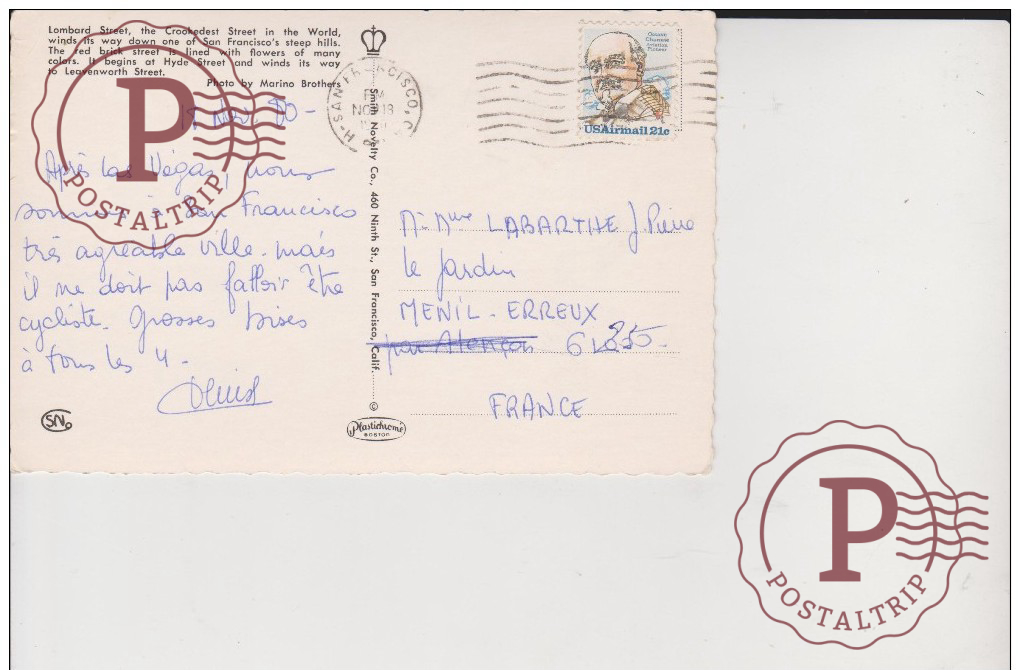 Lombard Street, the Crookedest Street in the World,
winds its way down one of San Francisco's steep hills.
The red brick street is lined with flowers of many
colors. It begins at Hyde Street and winds its way
to Leavenworth Street.
Photo by Marino Brothers
Nov. 80 -
Après Las Végas, nous
sommes à San Francisco
très agréable ville. mais
il ne doit pas falloir être
cycliste. Grosses bises
à tous les 4 -
SNC
Smith Novelty Co., 460 Ninth St., San Francisco, Calif.
©
Plastichrome
BOSTON
SAN FRANCISCO, C
PM
NOV 18
Octave
Chanute
Aviation
Pioneer
USAirmail 21c
M. Mme LABARTHE J. Pierre
le Jardin
MENIL-ERREUX
par Alençon
FRANCE
P
POSTALTRIP
P
POSTALTRIP